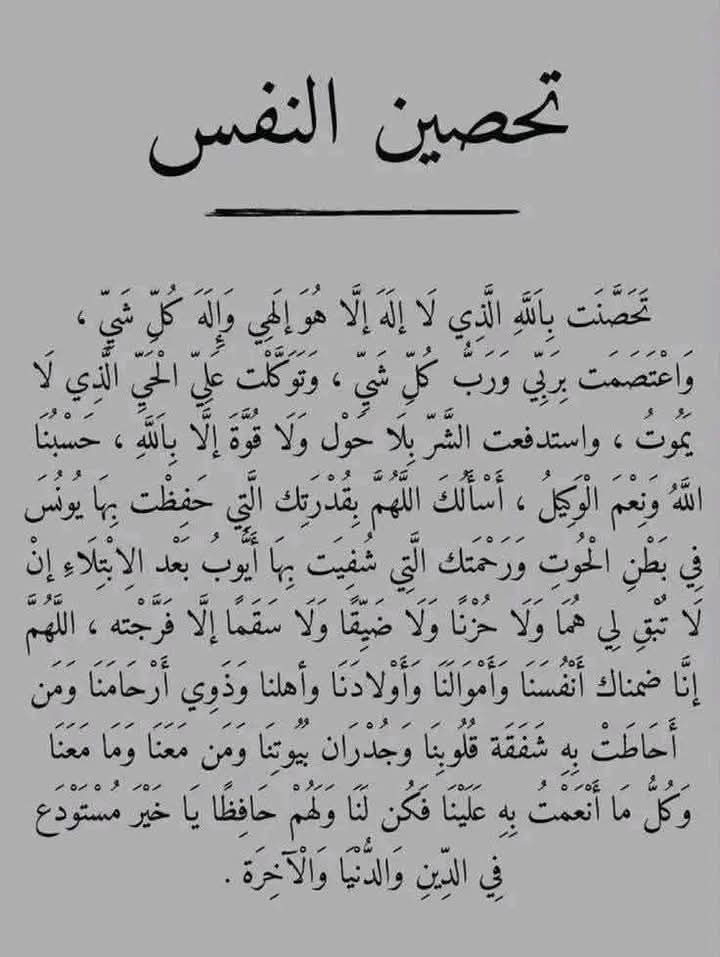 تحصين النفس
تَحَصَّنَت بِاَللَّهِ الَّذِي لَا إلَهَ إلَّا هُوَ إلَهِي وَإِلَهَ كُلِّ شَيِّ ،
وَاعْتَصَمَت بِرَبِّي وَرَبُّ كُلِّ شَيِّ ، وَتَوَكَّلْت عَلِيِّ الْحَيِّ الَّذِي لَا
يَمُوتُ ، واستدفعت الشَّرّ بِلَا حَوْل وَلَا قُوَّةَ إلَّا بِاَللَّهِ ، حَسْبُنَا
اللَّهُ وَنِعْمَ الْوَكِيلُ ، أَسْأَلُكَ اللَّهُمَّ بِقُدْرَتِك الَّتِي حَفِظْت بِهَا يُونُسَ
فِي بَطْنِ الْحُوتِ وَرَحْمَتك الَّتِي شُفِيَت بِهَا أَيُّوبُ بَعْد الِابْتِلَاءِ إنْ
لَا تُبْقِ لِي هُمَا وَلَا حُزْنًا وَلَا ضَيِّقًا وَلَا سَقَمًا إلَّا فَرَّجْته ، اللَّهُمَّ
إنَّا ضمناك أَنْفُسَنَا وَأَمْوَالَنَا وَأَوْلادَنَا وأهلنا وَذَوِي أَرْحَامَنَا وَمَن
أَحَاطَتْ بِهِ شَفَقَة قُلُوبِنَا وَجُدْرَان بُيُوتِنَا وَمَن مَعَنَا وَمَا مَعَنَا
وَكُلُّ مَا أَنْعَمْتُ بِهِ عَلَيْنَا فَكُن لَنَا وَلَهُمْ حَافِظًا يَا خَيْرَ مُسْتَوْدَع
فِي الدِّينِ وَالدُّنْيَا وَالْآخِرَة .